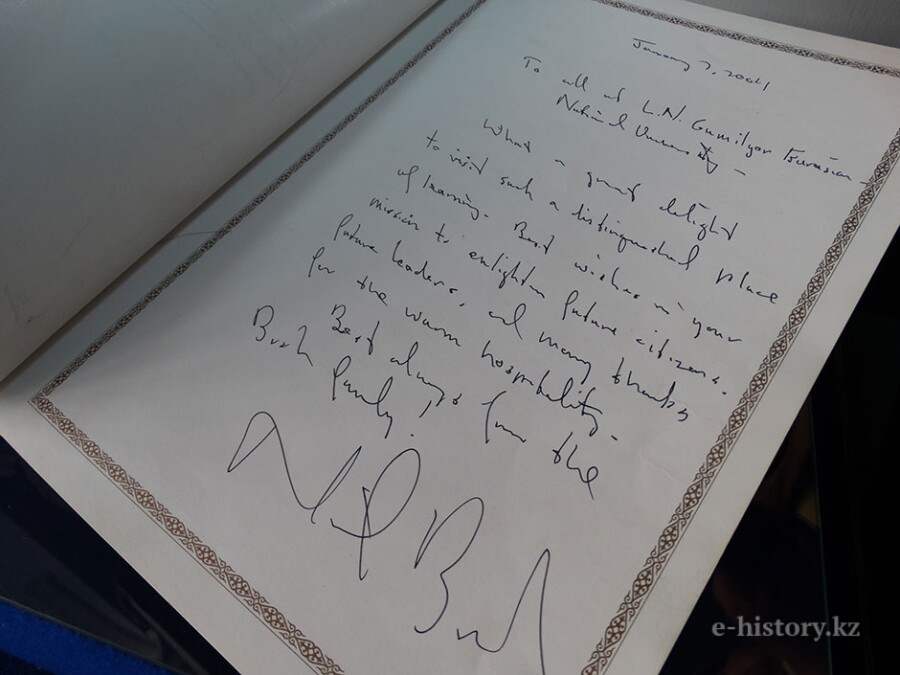 January 7, 2004
To all at L.N. Gumilyov Eurasian
National University –
What a great delight
to visit such a distinguished place
of learning. Best wishes in your
mission to enlighten future citizens,
future leaders, and many thanks
for the warm hospitality –
Best always from the
Bush family!
Neil Bush
e-history.kz